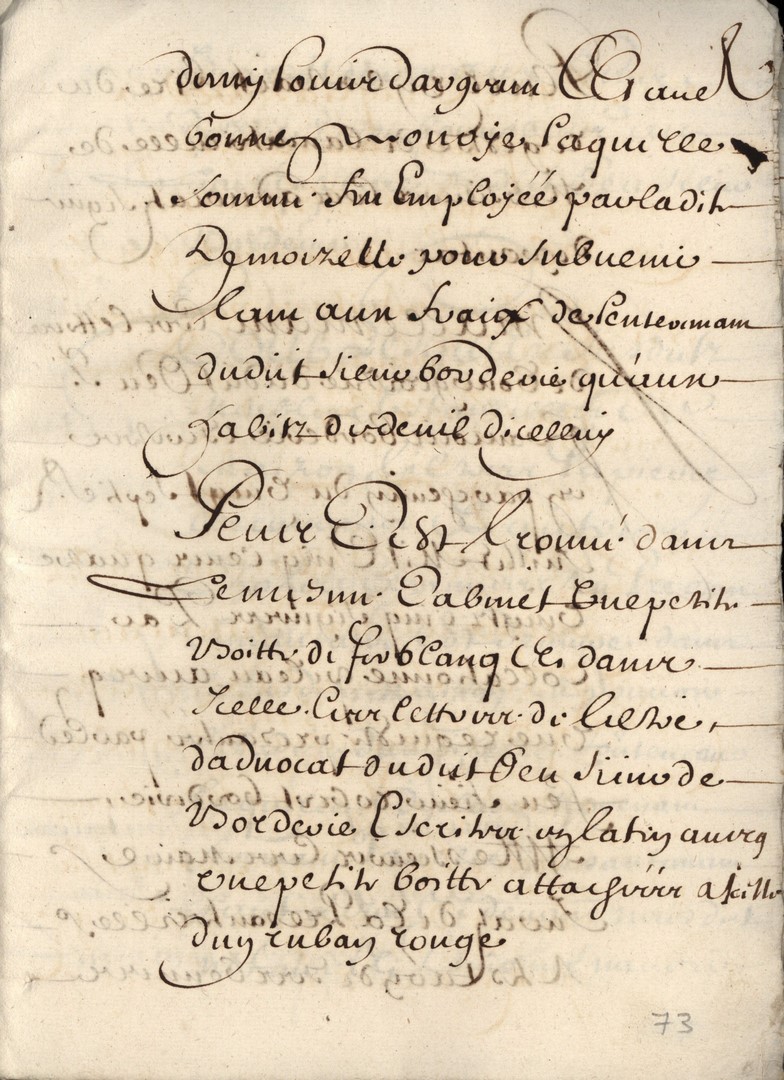 demy louis dargent Et autre
bonne monoye laquelle
somme fut Employéé par ladite
Demoizelle pour subvenir
tant aux fraix de lenterremant
dudit sieur borderie qu'aux
habitz de deuil dicelluy
Plus Est trouvé dans
le mesme Cabinet une petite
Boitte de fer blanq Et dans
Icelle les lettres de licence
dadvocat dudit feu sieur de
Borderie Escrites en latin avecq
une petite boitte attachéé a jcelle
dun ruban rouge
73